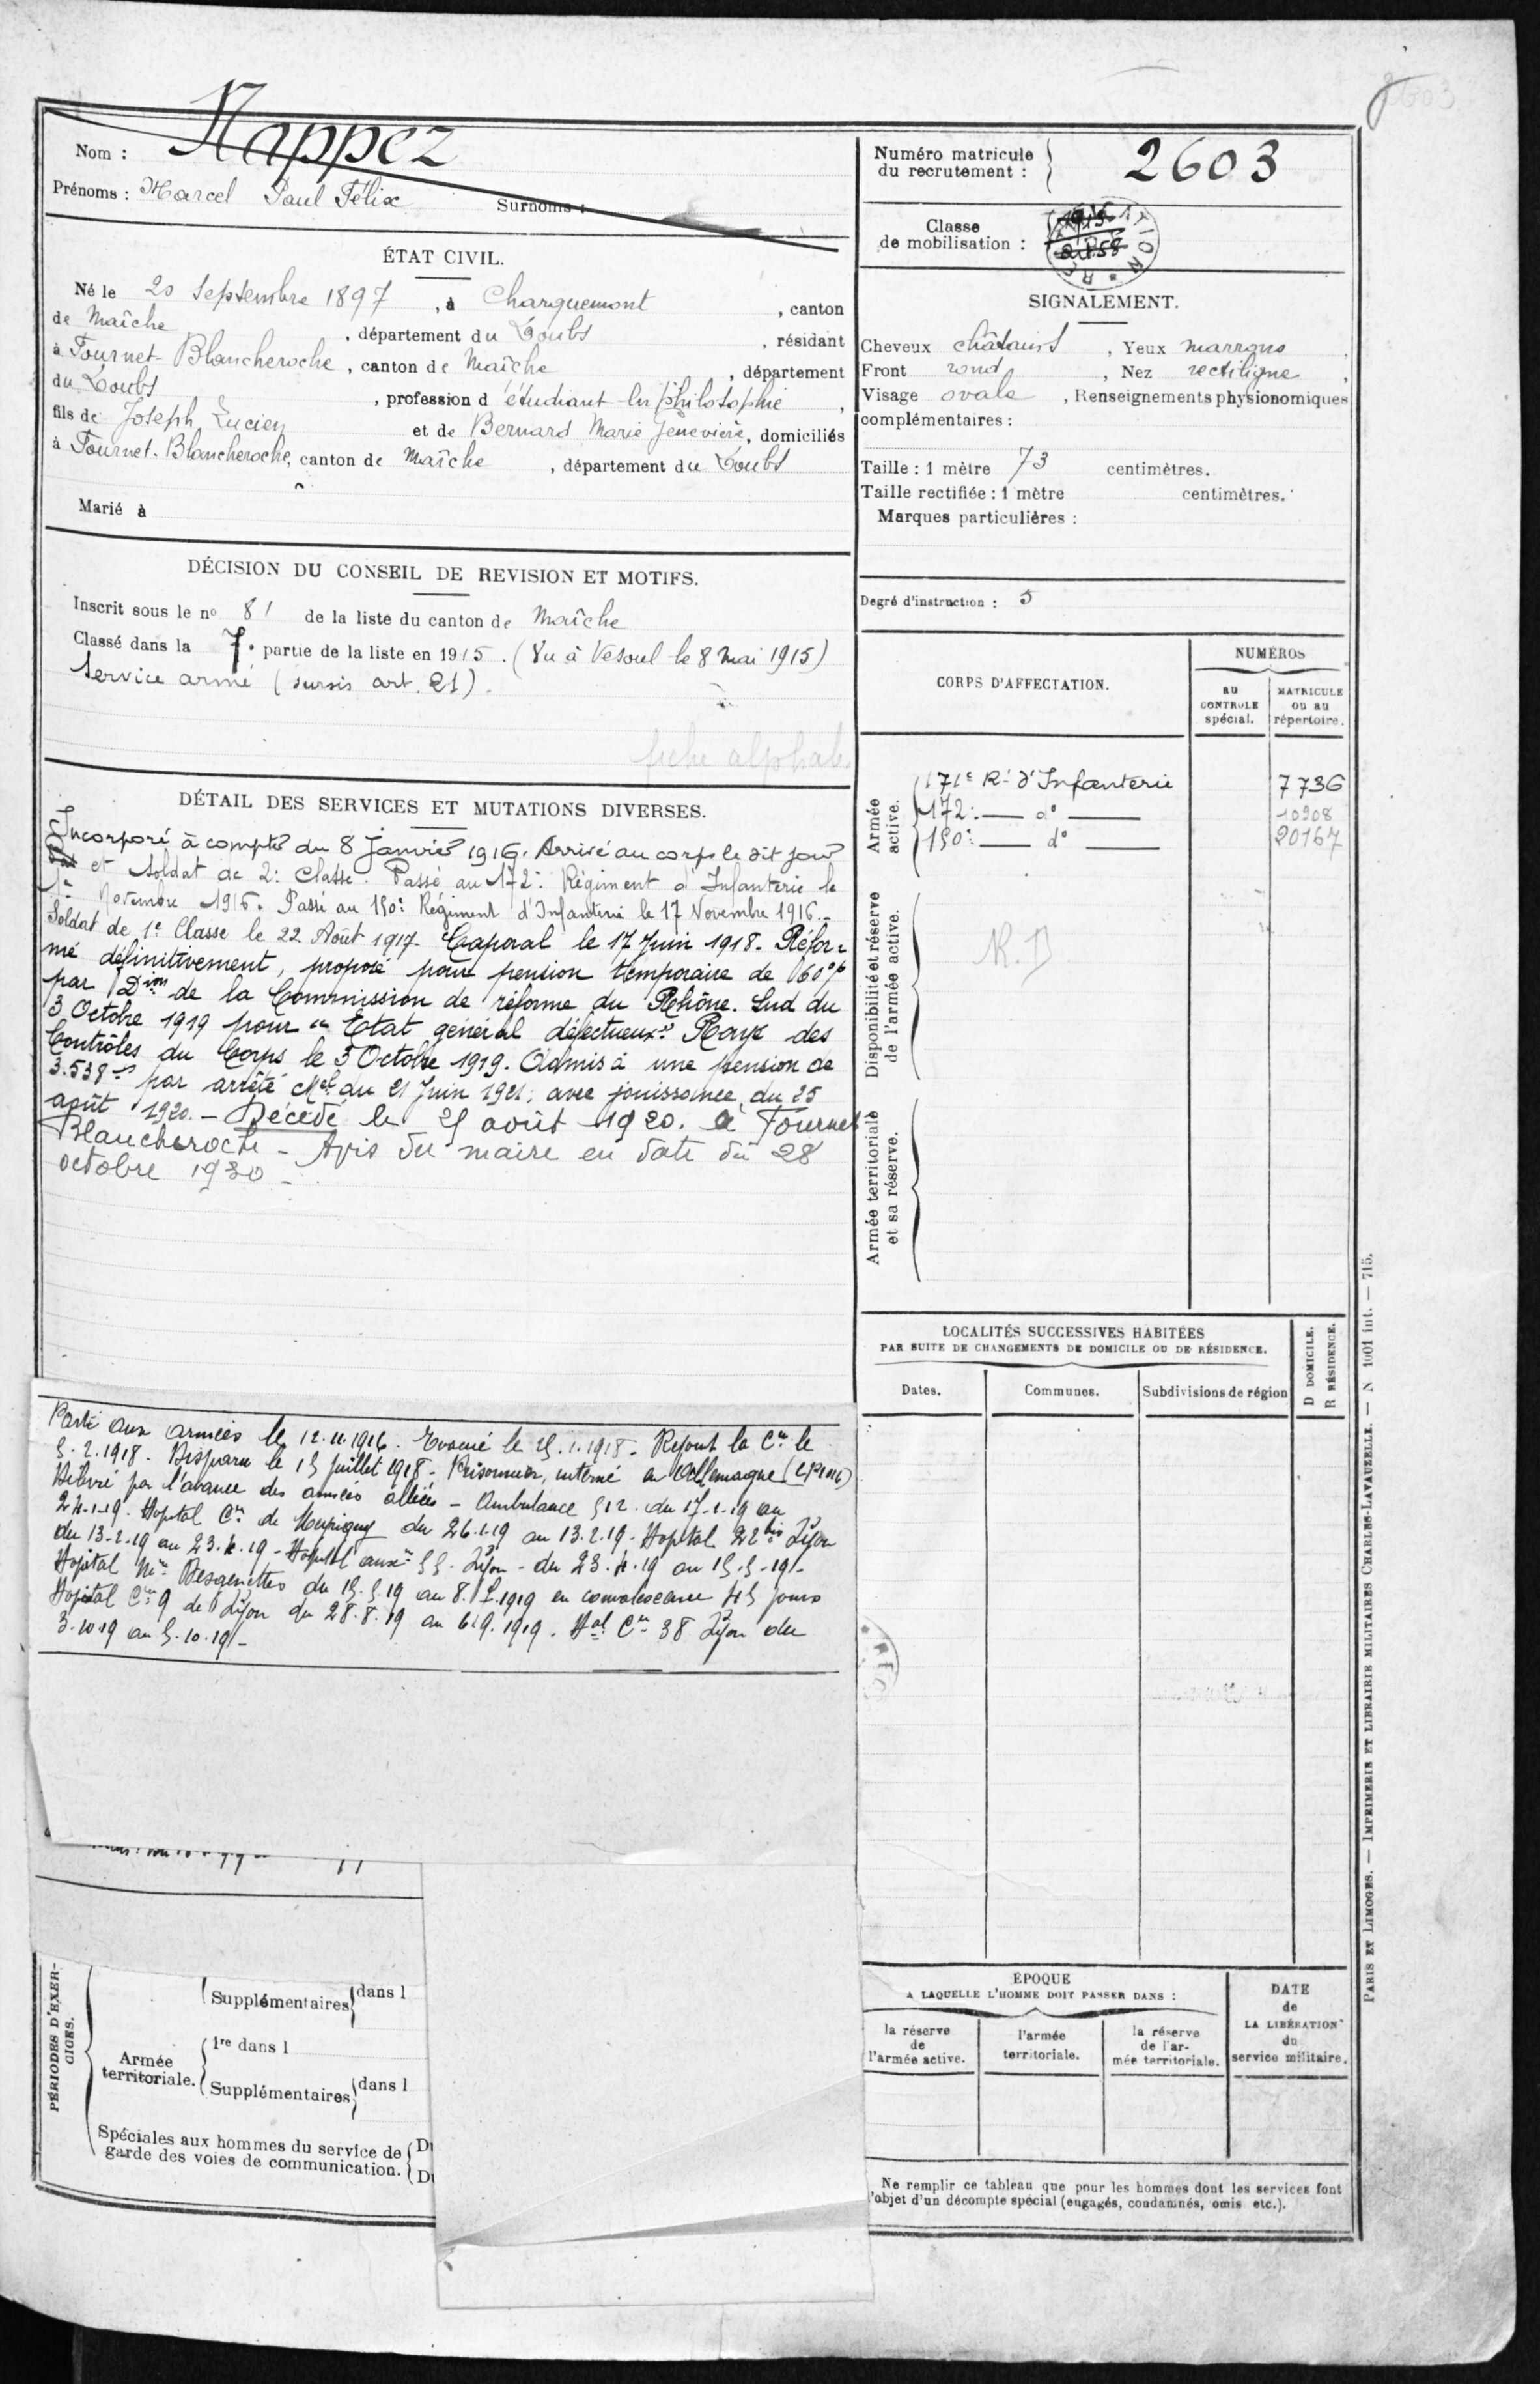 2603
Nom : Nappez
Prénoms : Marcel Paul Félix Surnoms :
ÉTAT CIVIL.
Né le 20 Septembre 1897, à Charquemont, canton
de Maîche, département du Doubs, résidant
à Fournet-Blancheroche, canton de Maîche, département
du Doubs, profession d'étudiant en philosophie,
fils de Joseph Lucien et de Bernard Marie Geneviève, domiciliés
à Fournet-Blancheroche, canton de Maîche, département du Doubs
Marié à
DÉCISION DU CONSEIL DE REVISION ET MOTIFS.
Inscrit sous le nº 81 de la liste du canton de Maîche
Classé dans la 7e partie de la liste en 1915. (Vu à Vesoul le 8 Mai 1915)
Service armé (sursis art. 21).
fiche alphab.
DÉTAIL DES SERVICES ET MUTATIONS DIVERSES.
Incorporé à compter du 8 Janvier 1916. Arrivé au corps le dit jour
et Soldat de 2e Classe. Passé au 172e Régiment d'Infanterie le
1er Novembre 1916. Passé au 150e Régiment d'Infanterie le 17 Novembre 1916.-
Soldat de 1e Classe le 22 Août 1917. Caporal le 17 Juin 1918. Réfor-
mé définitivement, proposé pour pension temporaire de 60 %
par Don de la Commission de réforme du Rhône. Sud du
3 Octobre 1919 pour "Etat général défectueux" Rayé des
Contrôles du Corps le 5 Octobre 1919. Admis à une pension de
3.538 f par arrêté Mel du 21 Juin 1921, avec jouissance du 25
août 1920. - Décédé le 25 août 1920. à Fournet
Blancheroche - Avis du maire en date du 28
octobre 1930 -
Parti aux armées le 12.11.1916. Evacué le 25.1.1918. Rejoint la Cie le
5.2.1918. Disparu le 15 Juillet 1918. Prisonnier, interné en Allemagne
Délivré par l'avance des armées alliées - Ambulance 512 du 17-1-19 au
24-1-19. Hopital Cre de du 26.1.19 au 13.2.19. Hopital 22 bis Lyon
du 13-2-19 au 23.4.19 - Hopital auxre 55 Lyon - du 23.4.19 au 15-5-19 -
Hopital Mre Desgenettes du 15.5.19 au 8. .1919 en convalescence 45 jours
Hopital Cre 9 de Lyon du 28.8.19 au 6.9.1919. Hal Cre 38 Lyon du
3.10.19 au 5.10.19 -
PÉRIODES D'EXERCICES.
Supplémentaires dans l
Armée territoriale.
1re dans l
Supplémentaires dans l
Spéciales aux hommes du service de
garde des voies de communication.
Numéro matricule
du recrutement : 2603
Classe
de mobilisation :
SIGNALEMENT.
Cheveux châtains, Yeux marrons,
Front rond, Nez rectiligne,
Visage ovale, Renseignements physionomiques
complémentaires :
Taille : 1 mètre 73 centimètres.
Taille rectifiée : 1 mètre centimètres.
Marques particulières :
Degré d'instruction : 5
CORPS D'AFFECTATION.
NUMÉROS
AU CONTROLE spécial.
MATRICULE ou au répertoire.
Armée active.
171e Rt d'Infanterie 7736
172e — do — 10908
150e — do — 20167
Disponibilité et réserve de l'armée active.
R.D
Armée territoriale et sa réserve.
LOCALITÉS SUCCESSIVES HABITÉES
PAR SUITE DE CHANGEMENTS DE DOMICILE OU DE RÉSIDENCE.
D DOMICILE.
R RÉSIDENCE.
Dates. Communes. Subdivisions de région
ÉPOQUE
A LAQUELLE L'HOMME DOIT PASSER DANS :
la réserve de l'armée active.
l'armée territoriale.
la réserve de l'armée territoriale.
DATE de LA LIBÉRATION du service militaire.
Ne remplir ce tableau que pour les hommes dont les services font
l'objet d'un décompte spécial (engagés, condamnés, omis etc.).
PARIS ET LIMOGES. — IMPRIMERIE ET LIBRAIRIE MILITAIRES CHARLES-LAVAUZELLE. — N 1001 int. — 715.